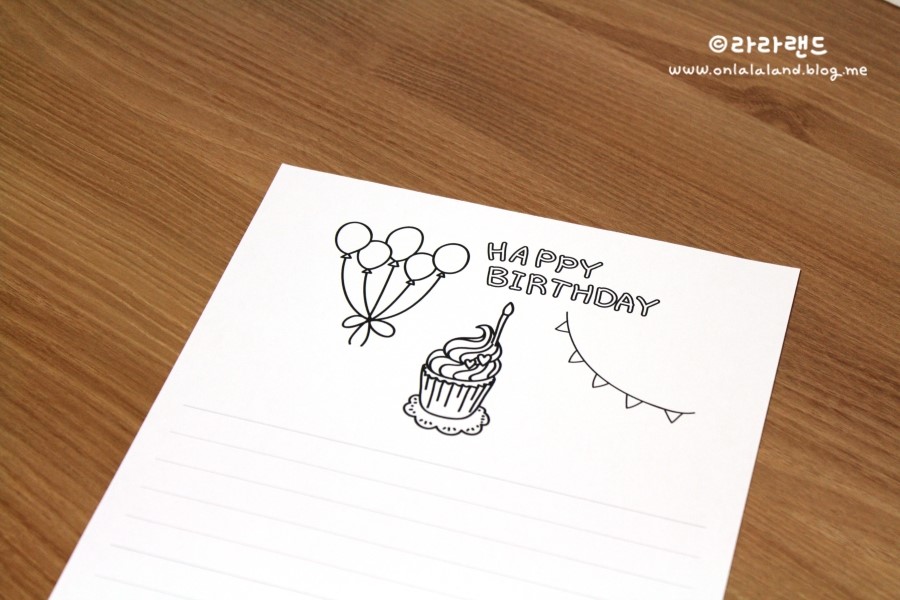 ©라라랜드
www.onlalaland.blog.me
HAPPY
BIRTHDAY